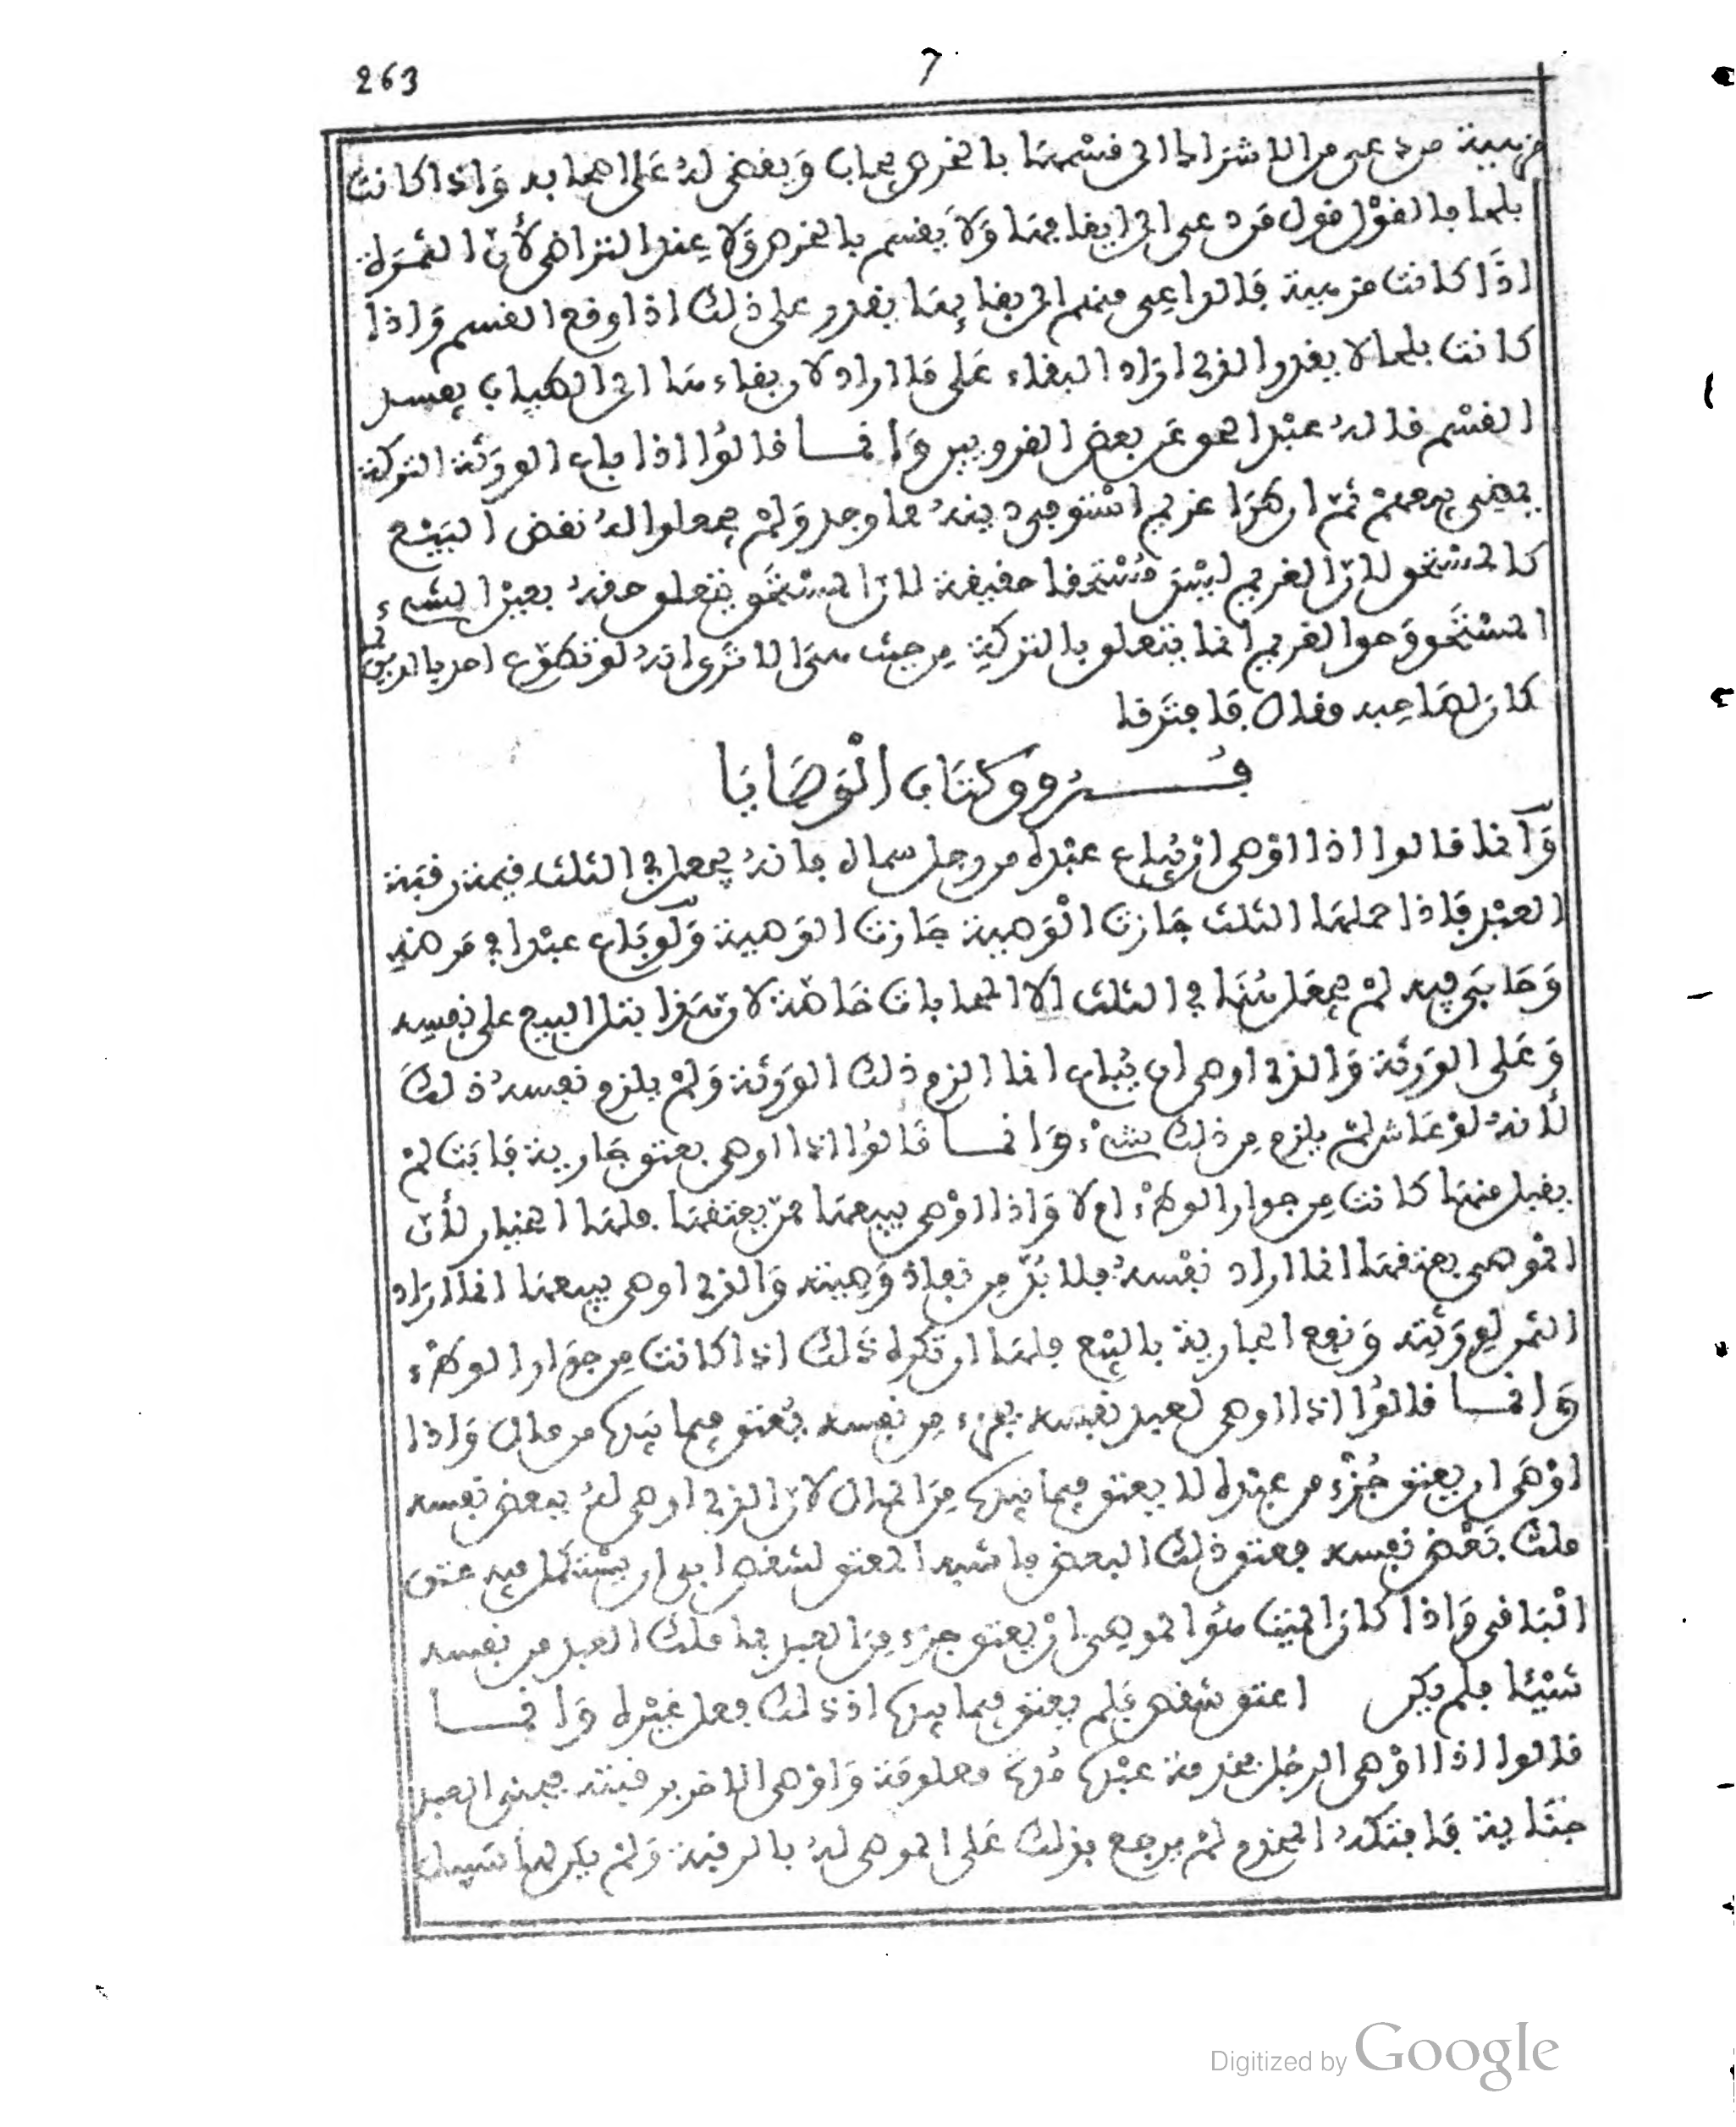 263
7
مزهية من دعى من الاشراك الى قسمتها بالخرص يجاب ويقضى له على اصحابه واذا كانت
بلحا فالقول قول من دعى الى ابقائها ولا يقسم بالخرص ولا عند التراضى لأن الثمرة
اذا كانت مزهية فالداعى منهم الى بقائها يقدر على ذلك اذا وقع القسم واذا
كانت بلحا لا يقدر الذى اراد البقاء على ما اراد لان بقاءها الى الطياب يفسد
القسم قاله عبد الحق عن بعض القرويين وانما قالوا اذا باع الورثة التركة
يمضى بيعهم ثم ان طرا غريم استوفى دينه مما وجد ولم يجعلوا له نقض البيع
كالمستحق لان الغريم ليس مستحقا حقيقة لان المستحق يتعلق حقه بعين الشىء
المستحق وحق الغريم انما يتعلق بالتركة من حيث الا ترى انه لو تطوع احد بالدين
كان لصاحبه مقال فافترقا
فروق كتاب الوصايا
وانما قالوا اذا اوصى ان يباع عبده من رجل بمال فانه يجعل في الثلث قيمة رقبة
العبد فاذا حملها الثلث جازت الوصية جازت الوصية ولو باع عبدا في مرضه
وحابى فيه لم يجعل منها في الثلث الا المحابات خاصة لان هذا بتل البيع على نفسه
وعلى الورثة والذى اوصى ان يباع انما الزم ذلك الورثة ولم يلزم نفسه ذلك
لأنه لو عاش لم يلزم من ذلك شىء وانما قالوا اذا اوصى بعتق جارية فابت لم
يقبل منها كانت من جوار الوطء ام لا واذا اوصى ببيعها ممن يعتقها فلها الخيار لأن
الموصى بعتقها انما اراد نفسه فلا بد من نفاذ وصيته والذى اوصى ببيعها انما اراد
الثمن لورثته ونفع الجارية بالبيع فلها ان تكره ذلك اذا كانت من جوار الوطء
وانما قالوا اذا اوصى لعبد نفسه بجزء من نفسه يعتق فيما بيده من مال واذا
اوصى ان يعتق جزء من عبده لا يعتق فيما بيده من المال لان الذى اوصى له ببعض نفسه
ملك بعض نفسه فعتق ذلك البعض فاشبه المعتق لشقص ابدا ان يستكمل فيه عتق
الباقى واذا كان الميت هو الموصى ان يعتق جزء من العبد فما ملك العبد من نفسه
شيئا فلم يكن اعتق شقص فلم يعتق فيما بيده اذ ذلك فعل غيره وانما
قالوا اذا اوصى الرجل بخدمة عبده مدة معلومة واوصى لاخر برقبته فجنى العبد
جناية فافتكه المخدم لم يرجع بذلك على الموصى له بالرقبة ولم يكن لهذا سبيل
Digitized by Google